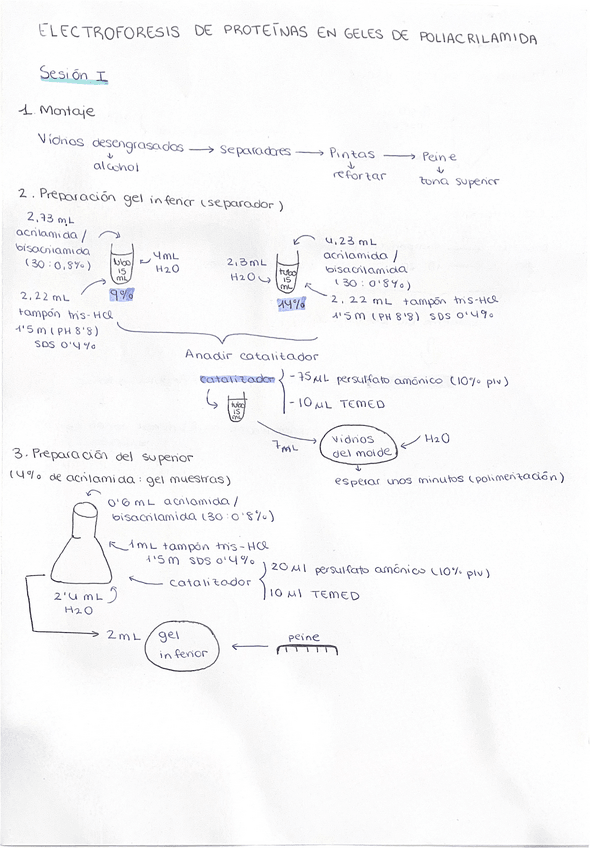 ELECTROFORESIS DE PROTEÍNAS EN GELES DE POLIACRILAMIDA
Sesión I
1. Montaje
Vidrios desengrasados → separadores → Pinzas → Peine
alcohol
reforzar
zona superior
2. Preparación gel inferior (separador)
2,73 mL
acrilamida/
bisacrilamida
(30:0,8%)
tubo
15
mL
4mL
H2O
9%
2,22 mL
tampón tris-HCl
1'5 M (PH 8'8)
SDS 0'4%
2,3mL
H2O
tubo
15
mL
14%
4,23 mL
acrilamida/
bisacrilamida
(30:0'8%)
2,22 mL tampón tris-HCl
1'5 M (PH 8'8) SDS 0'4%
Anadir catalitador
catalitador
- 75 µL persulfato amónico (10% p/v)
- 10 µL TEMED
tubo
15
mL
7mL
vidrios
del molde
H2O
esperar unos minutos (polimerización)
3. Preparación del superior
(4% de acrilamida: gel muestras)
0'6 mL acrilamida/
bisacrilamida (30:0'8%)
1mL tampón tris-HCl
1'5 M SDS 0'4%
catalitador
20 µl persulfato amónico (10% p/v)
10 µl TEMED
2'4 mL
H2O
2mL
gel
inferior
peine